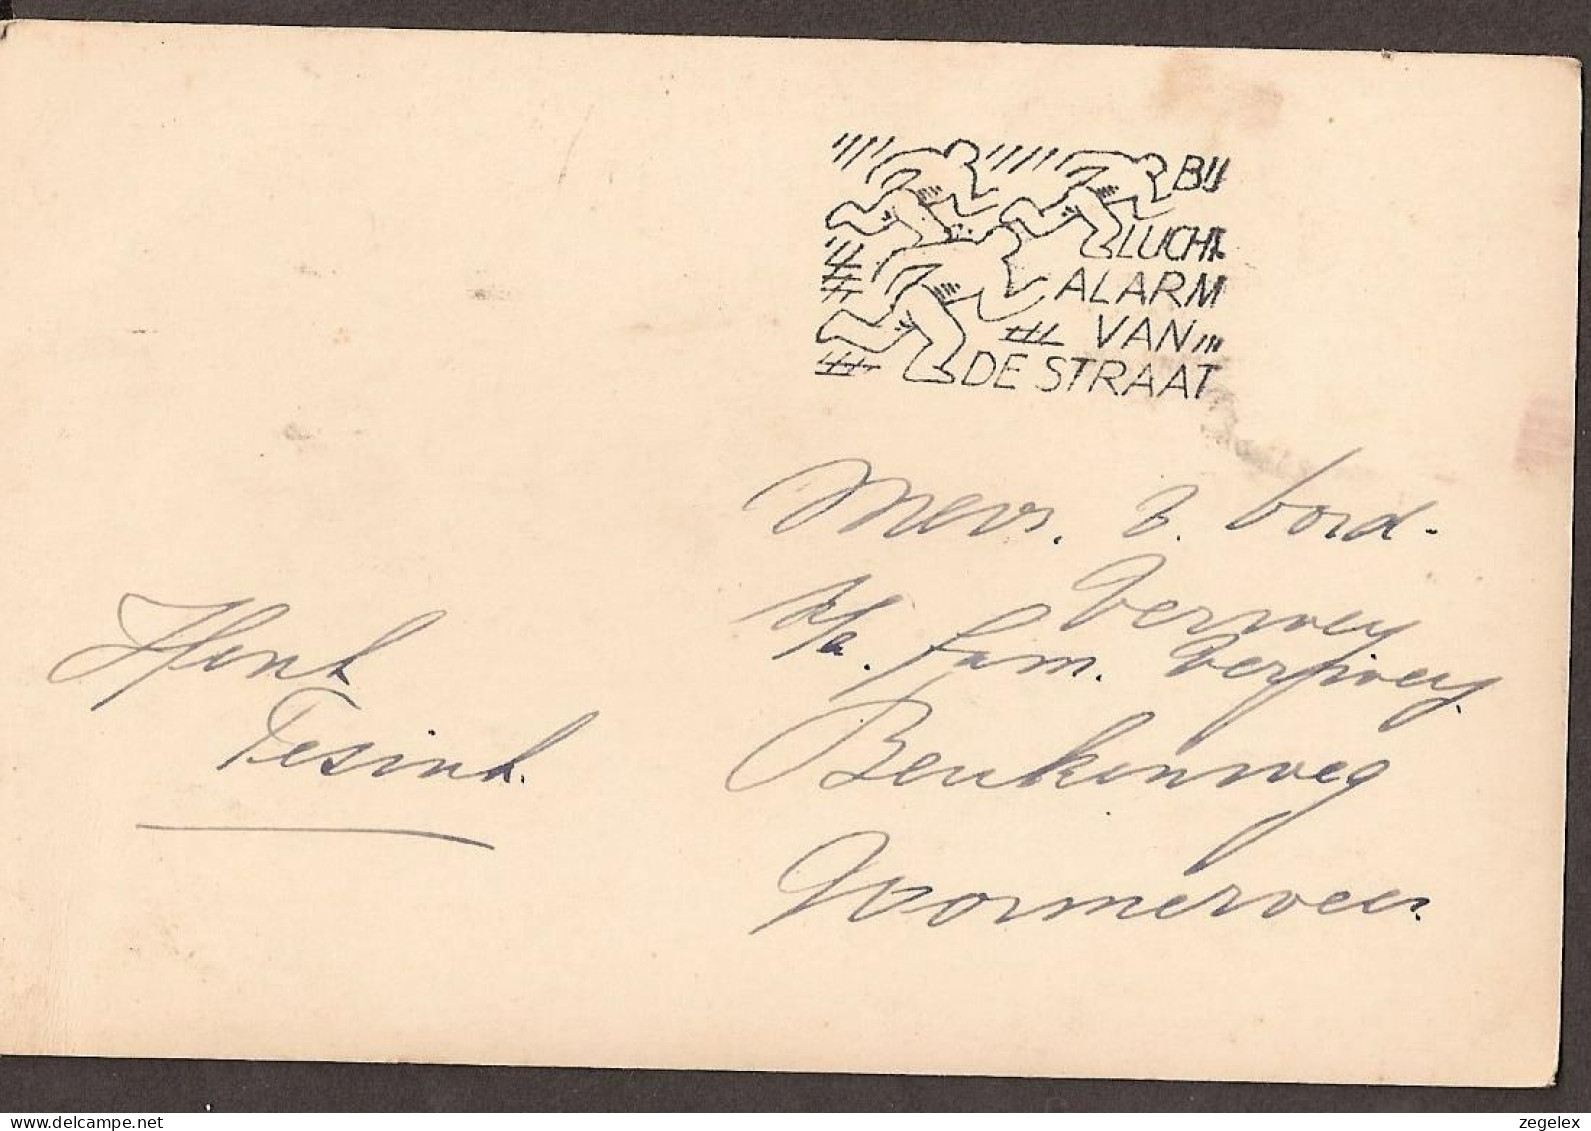 BIJ
LUCHT
ALARM
VAN
DE STRAAT
Mevr. v. Bord-
Verwey
p/a. fam. Verwey
Henk
Tesink.
Beukenweg
Wormerveer.
www.delcampe.net
zegelex